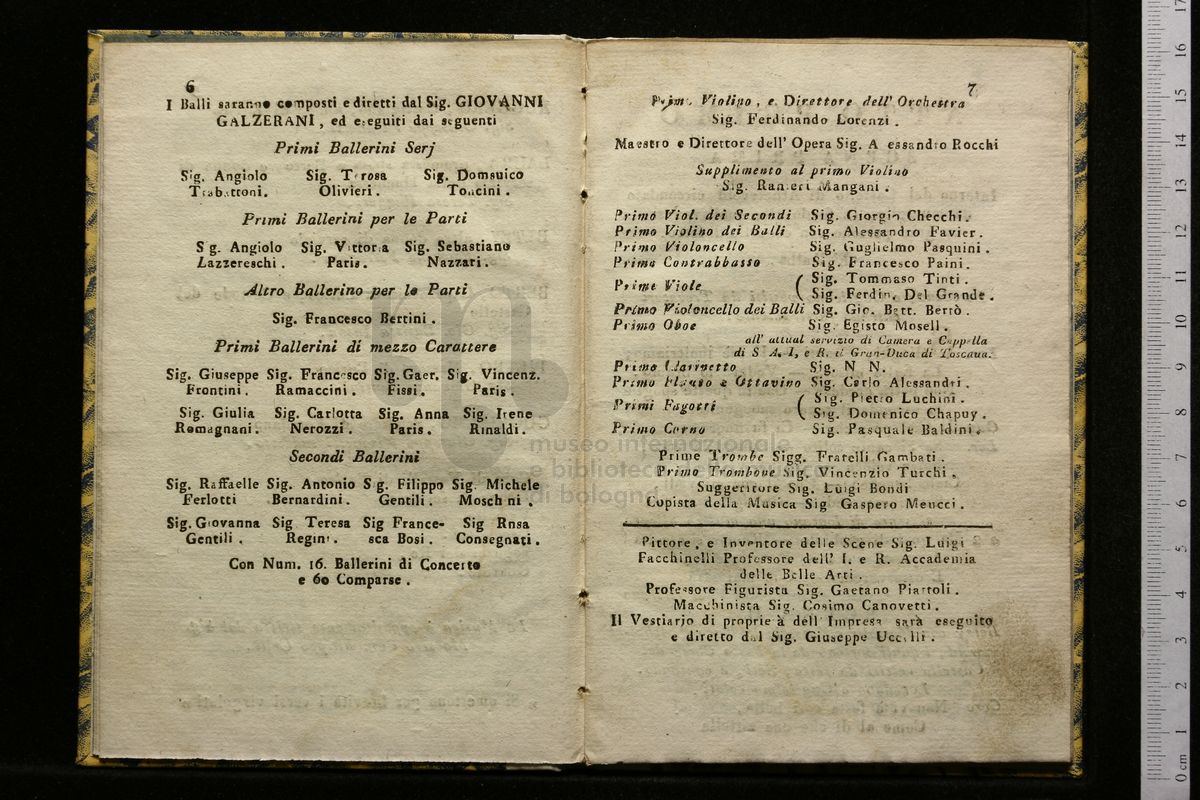 6
I Balli saranno composti e diretti dal Sig. GIOVANNI
GALZERANI, ed eseguiti dai seguenti
Primi Ballerini Serj
Sig. Angiolo Sig. Teresa Sig. Domenico
Trabattoni. Olivieri. Toncini.
Primi Ballerini per le Parti
Sig. Angiolo Sig. Vittoria Sig. Sebastiano
Lazzereschi. Paris. Nazzari.
Altro Ballerino per le Parti
Sig. Francesco Bertini.
Primi Ballerini di mezzo Carattere
Sig. Giuseppe Sig. Francesco Sig. Gaer. Sig. Vincenz.
Frontini. Ramaccini. Fissi. Paris.
Sig. Giulia Sig. Carlotta Sig. Anna Sig. Irene
Romagnani. Nerozzi. Paris. Rinaldi.
Secondi Ballerini
Sig. Raffaelle Sig. Antonio Sig. Filippo Sig. Michele
Ferlotti Bernardini. Gentili. Moschini.
Sig. Giovanna Sig Teresa Sig France- Sig Rnsa
Gentili. Regini. sca Bosi. Consegnati.
Con Num. 16. Ballerini di Concerto
e 60 Comparse.
7
Primo Violino, e Direttore dell' Orchestra
Sig. Ferdinando Lorenzi.
Maestro e Direttore dell' Opera Sig. A essandro Rocchi
Supplimento al primo Violino
Sig. Ranieri Mangani.
Primo Viol. dei Secondi Sig. Giorgio Checchi.
Primo Violino dei Balli Sig. Alessandro Favier.
Primo Violoncello Sig. Guglielmo Pasquini.
Primo Contrabbasso Sig. Francesco Paini.
Prime Viole ( Sig. Tommaso Tinti.
Sig. Ferdin. Del Grande.
Primo Violoncello dei Balli Sig. Gio. Batt. Bertò.
Primo Oboe Sig. Egisto Mosell.
all' attual servizio di Camera e Cappella
di S A. I, e R. il Gran-Duca di Toscana.
Primo Clarinetto Sig. N N.
Primo Flauto e Ottavino Sig. Carlo Alessandri.
Primi Fagotti ( Sig. Pietro Luchini.
Sig. Domenico Chapuy.
Primo Corno Sig. Pasquale Baldini.
Prime Trombe Sigg. Fratelli Gambati.
Primo Trombone Sig. Vincenzio Turchi.
Suggeritore Sig. Luigi Bondi
Copista della Musica Sig Gaspero Meucci.
Pittore, e Inventore delle Scene Sig. Luigi
Facchinelli Professore dell' I. e R. Accademia
delle Belle Arti.
Professore Figurista Sig. Gaetano Piattoli.
Macchinista Sig. Cosimo Canovetti.
Il Vestiario di proprie à dell Impresa sarà eseguito
e diretto dal Sig. Giuseppe Uccelli.
museo internazionale
e biblioteca della musica
di bologna
0 cm 1 2 3 4 5 6 7 8 9 10 11 12 13 14 15 16 17